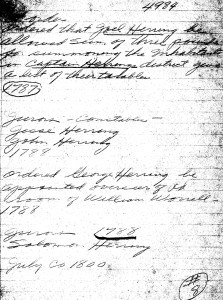 4984
Ordered that Joel Herring be
allowed sum of three pounds
for summoning the Inhabitants
in Captain district
a list of their taxables
1787
Jurors - Constable -
Jesse Herring
John Herring
1799
Ordered George Herring be
appointed overseer of Rd
room of William Worrell -
1788
Jurors 1788
Solomon Herring
July Co 1800